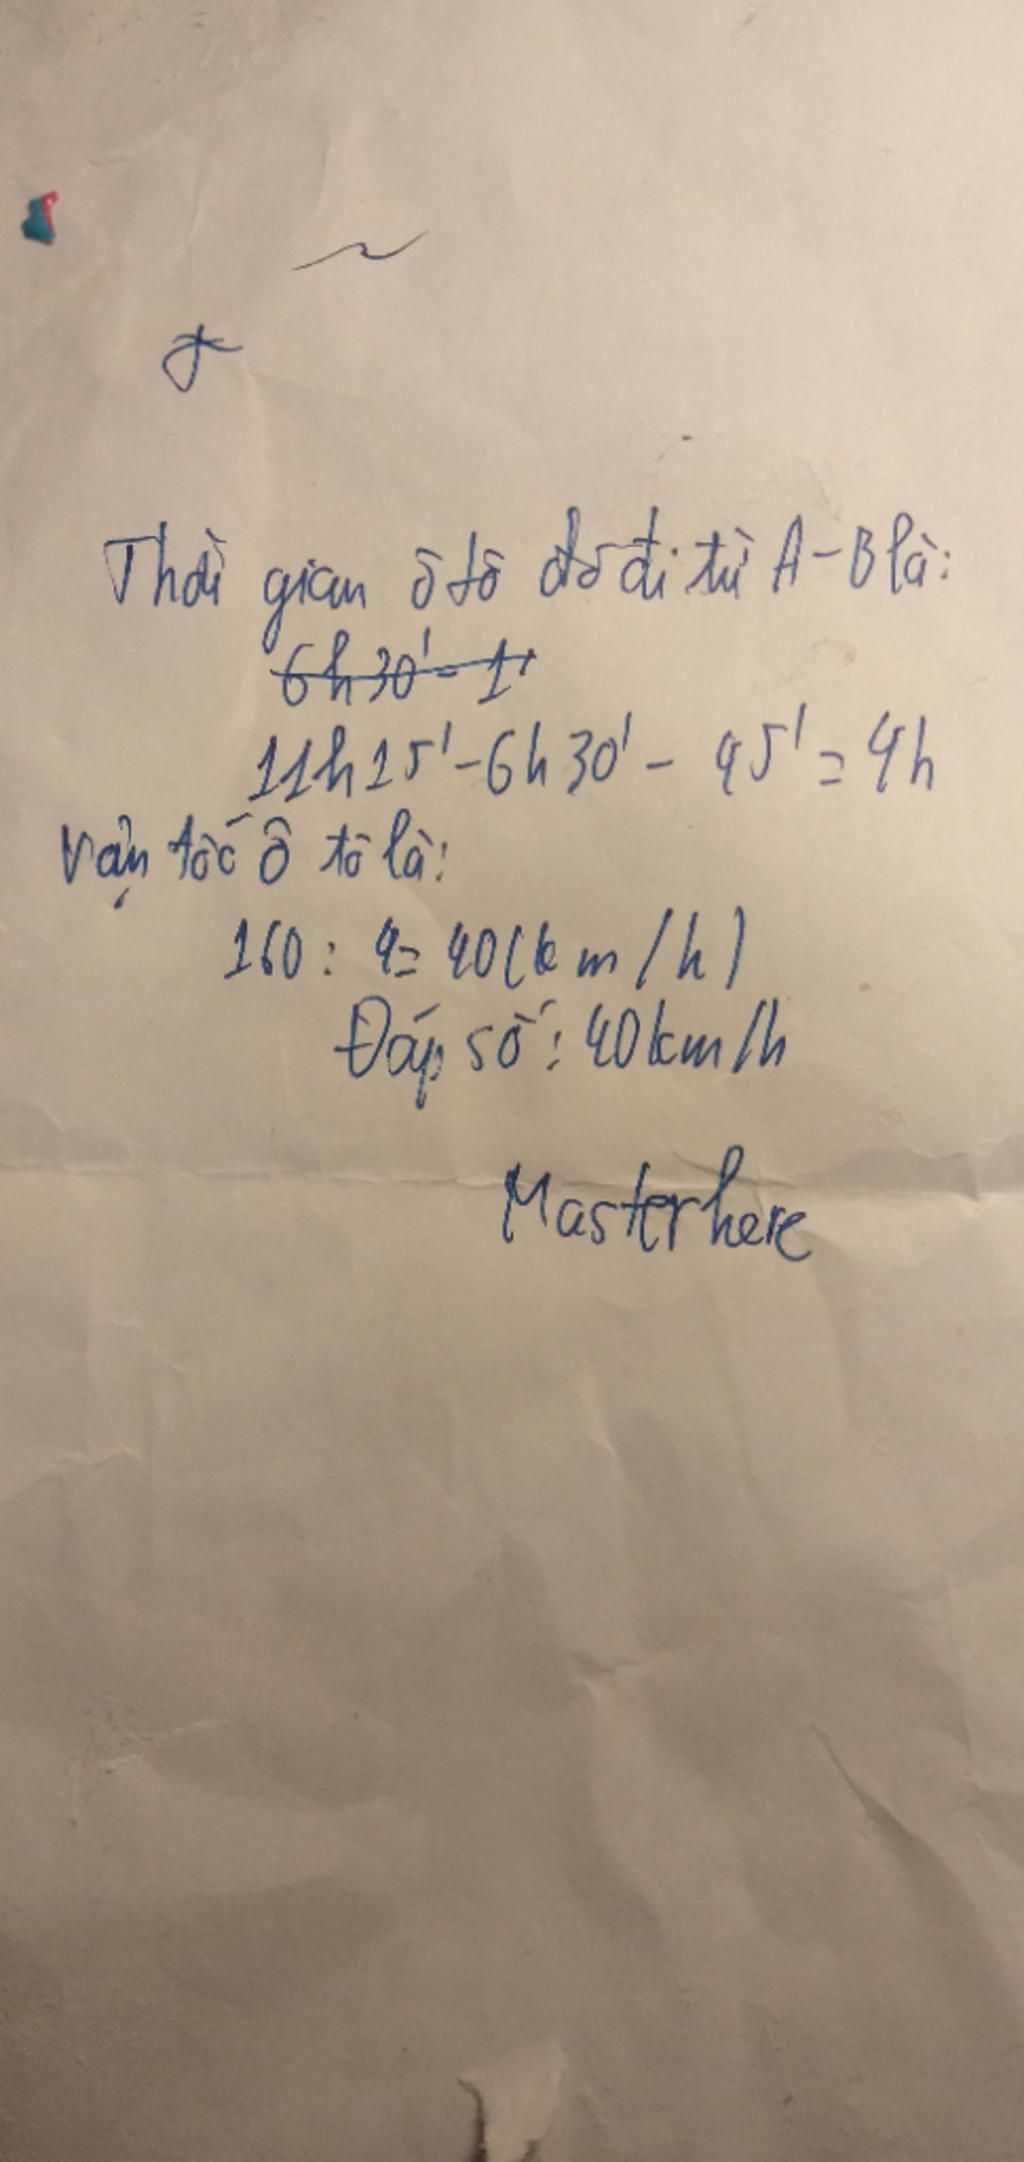 Thời gian ô tô đó đi từ A-B là:
6h30' - 1'
11h15' - 6h30' - 45' = 4h
Vận tốc ô tô là:
160 : 4 = 40 (km/h)
Đáp số: 40km/h
Masterhere